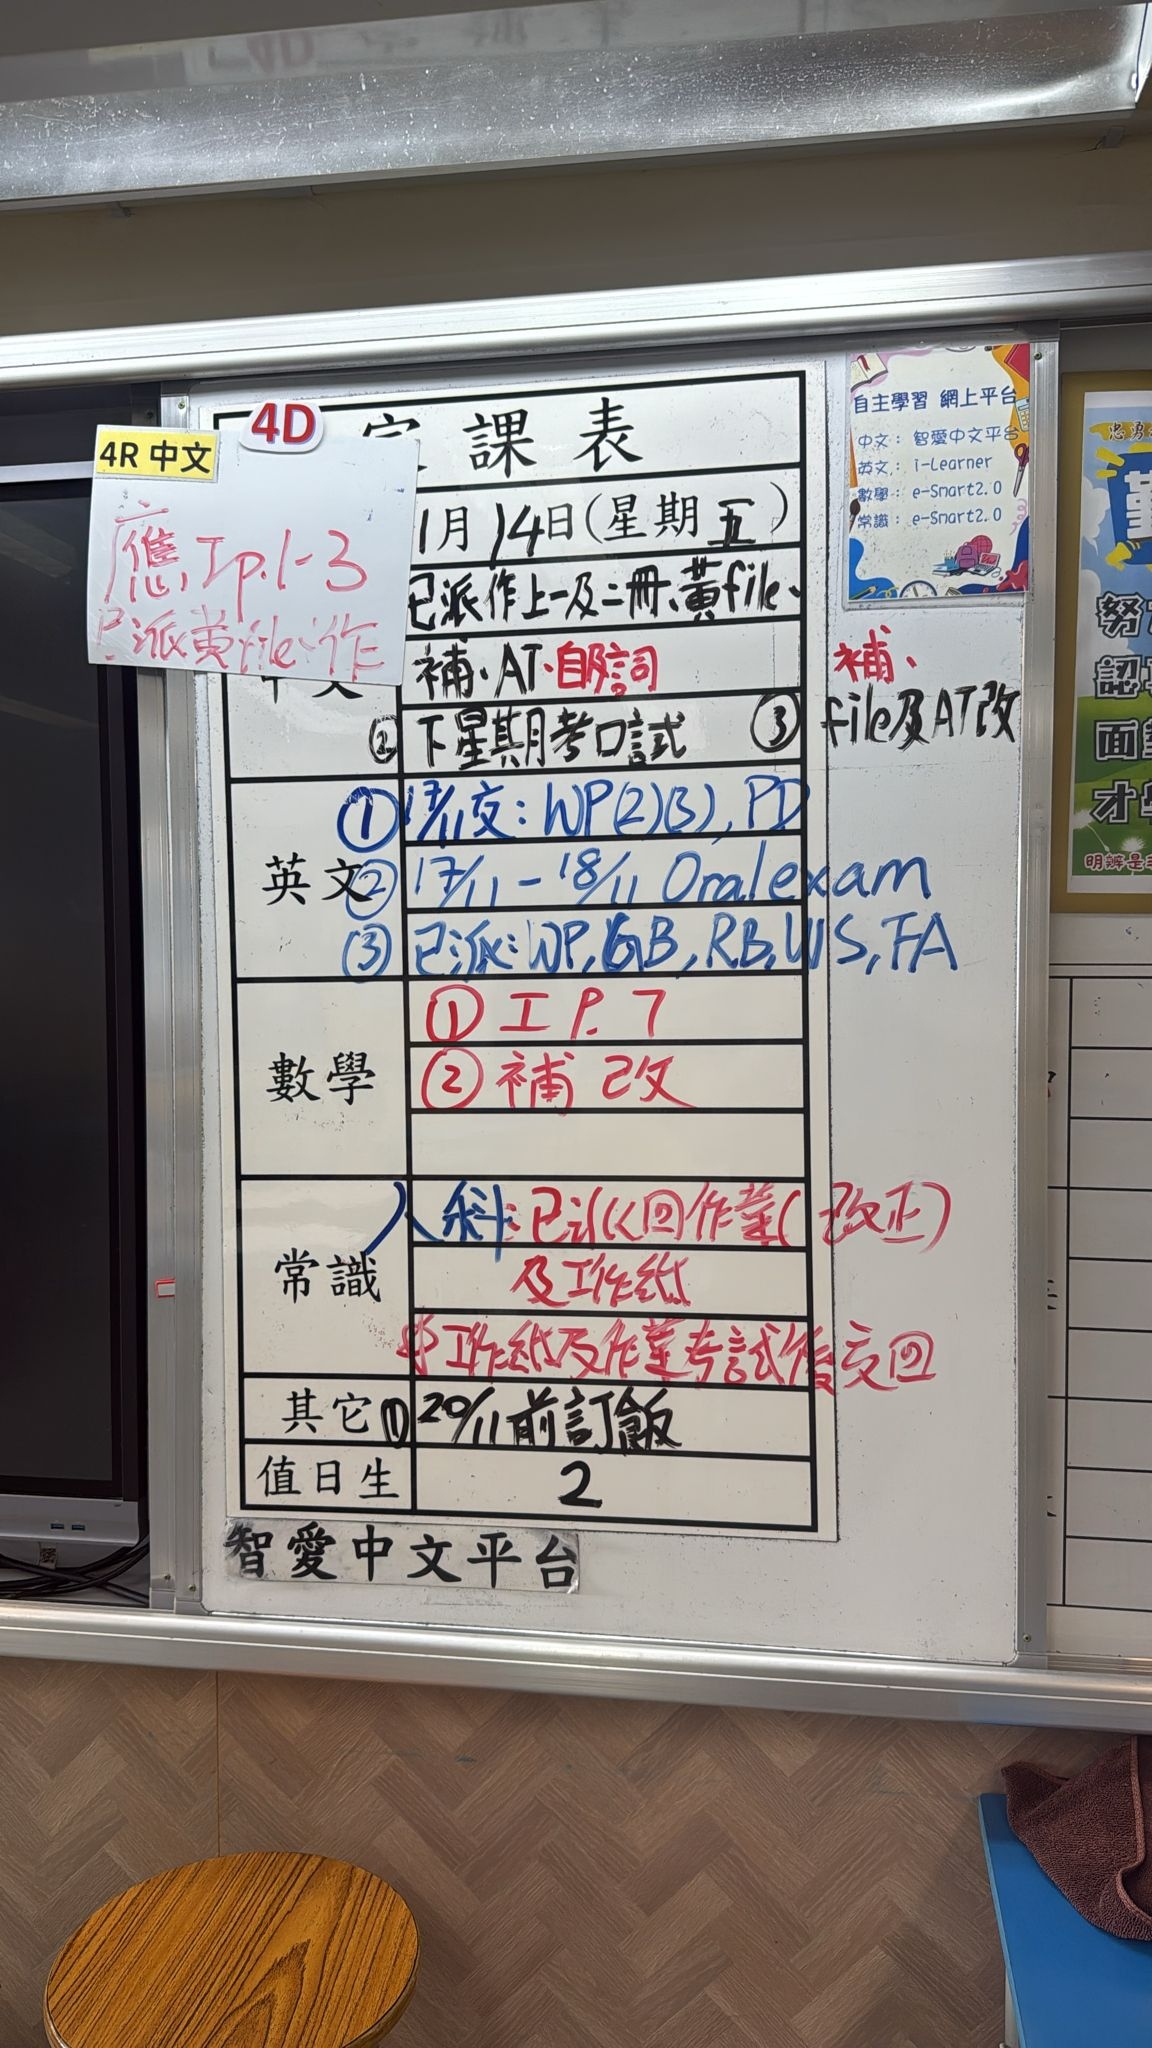 4D
課表
4R 中文
應, I p.1-3
已派黃file、作
1月14日(星期五)
已派作上一及二冊、黃file、
補、AT、自、詞
補、
②下星期考口試
③ file及AT改
英文
① 17/11交: WP(2)(3), PD
② 17/11 - 18/11 Oral exam
③ 已派: WP, GB, RB, WS, FA
數學
① 工 P. 7
② 補 改
常識
人 科: 已派回作業(改正)
及工作紙
工作紙及作業考試後交回
其它
① 20/11前訂飯
值日生
2
智愛中文平台
自主學習 網上平台
中文: 智愛中文平台
英文: i-Learner
數學: e-Smart2.0
常識: e-Smart2.0
忠勇
勤
努
認
面
才
明辨是